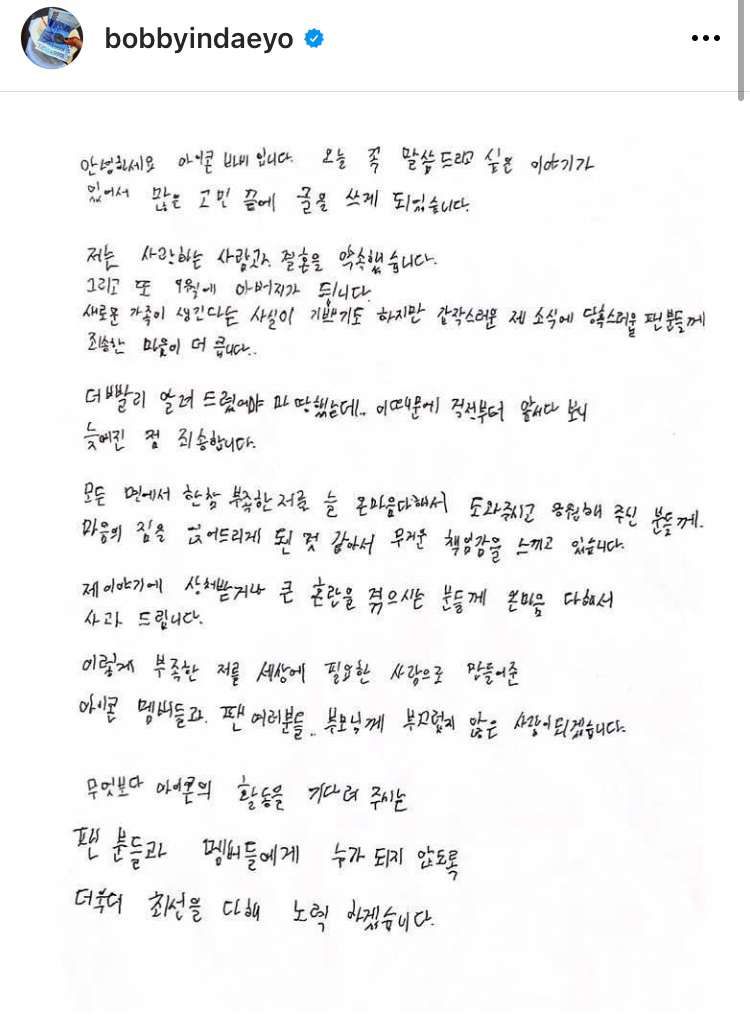 bobbyindaeyo
안녕하세요 아이콘 바비 입니다. 오늘 꼭 말씀드리고 싶은 이야기가
있어서 많은 고민 끝에 글을 쓰게 되었습니다.
저는 사랑하는 사람과 결혼을 약속했습니다.
그리고 또 9월에 아버지가 됩니다
새로운 가족이 생긴다는 사실이 기쁘기도 하지만 갑작스러운 제 소식에 당혹스러울 팬분들께
죄송한 마음이 더 큽니다..
더 빨리 알려 드렸어야 마땅했는데.. 이 때문에 걱정부터 앞서다 보니
늦어진 점 죄송합니다.
모든 면에서 한참 부족한 저를 늘 온마음다해서 도와주시고 응원해 주신 분들께.
마음의 짐을 얹어드리게 된 것 같아서 무거운 책임감을 느끼고 있습니다.
제 이야기에 상처받거나 큰 혼란을 겪으시는 분들께 온마음 다해서
사과 드립니다.
이렇게 부족한 저를 세상에 필요한 사람으로 만들어준
아이콘 멤버들과. 팬 여러분들.. 부모님께 부끄럽지 않은 사람이되겠습니다.
무엇보다 아이콘의 활동을 기다려 주시는
팬 분들과 멤버들에게 누가 되지 않도록
더욱더 최선을 다해 노력 하겠습니다.